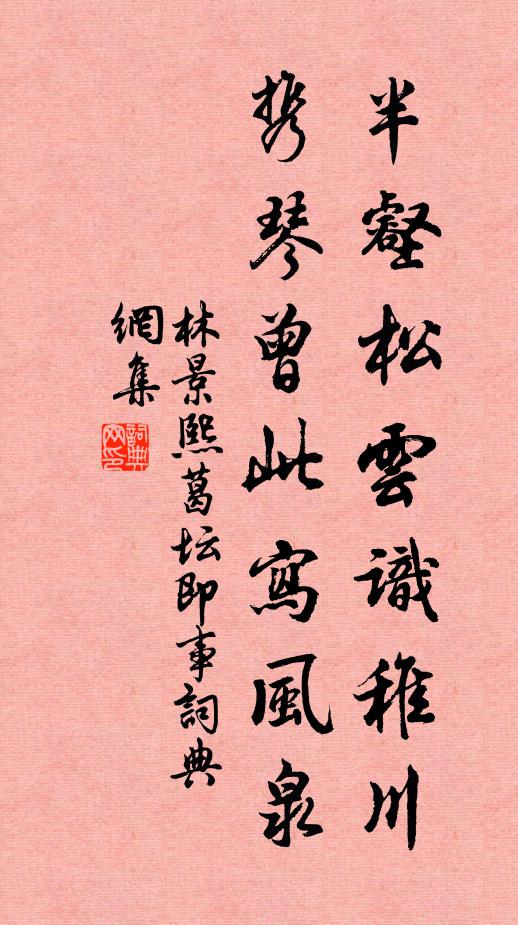 半壑松雲識稚川
携琴曾此寫風泉
林景熙葛坛即事詞典
網集
詞典網印